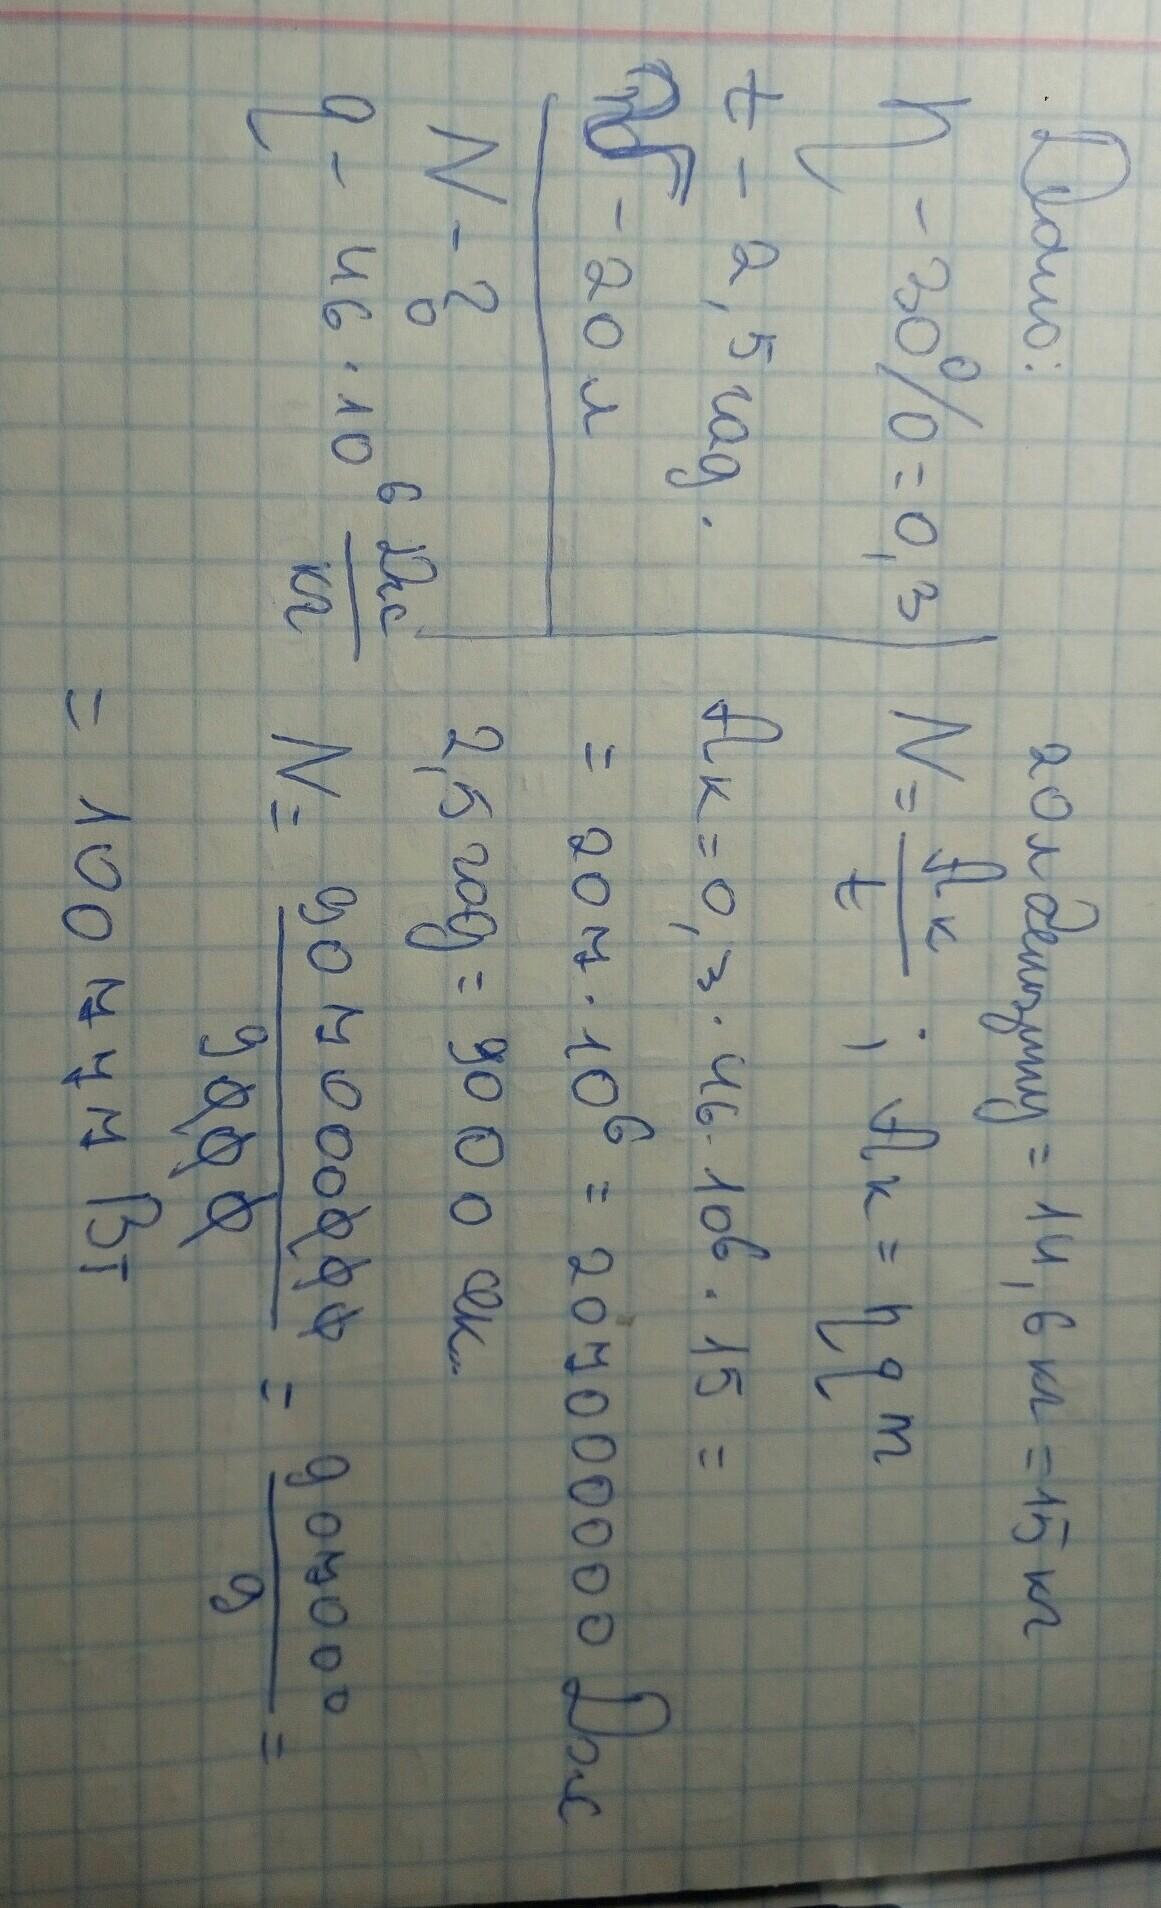 Дано:
η - 30% = 0,3
t - 2,5 год.
- 20 л
N - ?
q - 46 · 10⁶ Дж/кг
20 л бензину = 14,6 кг = 15 кг
N = Aк/t ; Aк = η q m
Aк = 0,3 · 46 · 10⁶ · 15 =
= 207 · 10⁶ = 207000000 Дж
2,5 год = 9000 сек.
N = 907000000/9000 = 907000/9 =
= 100777 Вт